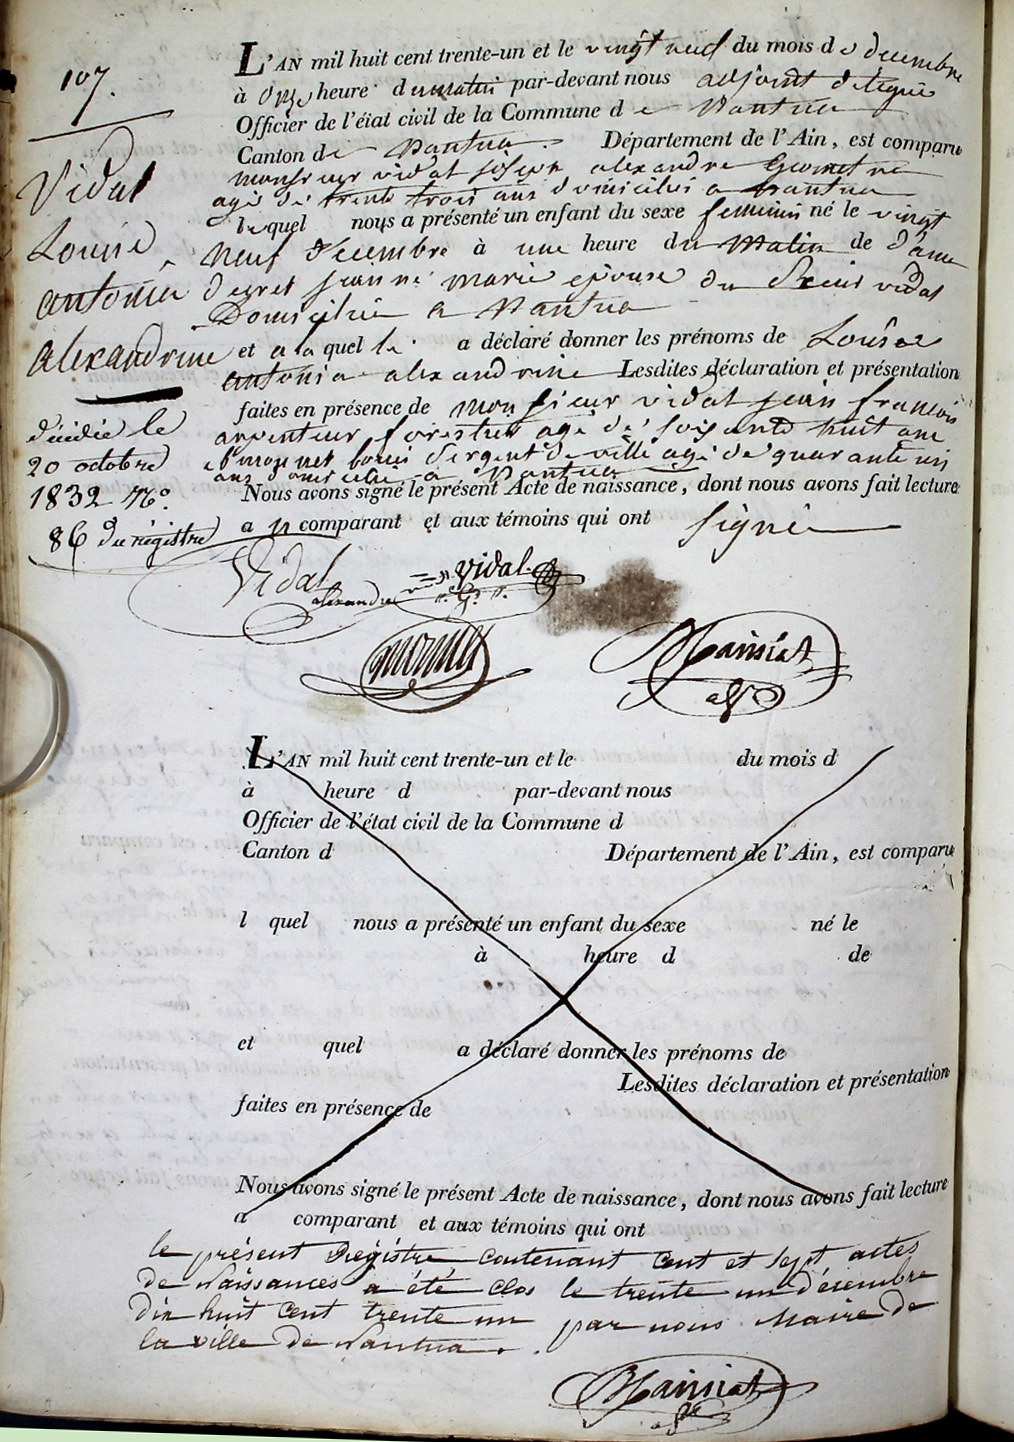 107.
Vidal
Louise
antonia
alexandrine
décédée le
20 octobre
1832 No.
86 du régistre
L'AN mil huit cent trente-un et le vingt neuf du mois de decembre
à onze heure du matin par-devant nous adjoint délégué
Officier de l'état civil de la Commune de Nantua
Canton de Nantua. Département de l'Ain, est comparu
monsieur vidal joseph alexandre Geometre
agé de trente trois ans domicilié a nantua
lequel nous a présenté un enfant du sexe feminin né le vingt
neuf decembre à une heure du matin de dame
degret jeanne marie epouse du Sieur vidal
Domiciliée a Nantua
et a la quelle a déclaré donner les prénoms de Louise
antonia alexandrine Lesdites déclaration et présentation
faites en présence de monsieur vidal jean francois
arpenteur forestier agé de soixante huit ans
et monnet louis sergent de ville agé de quarante un
ans domicilié a Nantua
Nous avons signé le présent Acte de naissance, dont nous avons fait lecture
au comparant et aux témoins qui ont signé
Vidal
alexandre
Vidal
monnet
Mainiat
L'AN mil huit cent trente-un et le du mois d
à heure d par-devant nous
Officier de l'état civil de la Commune d
Canton d Département de l'Ain, est comparu
l quel nous a présenté un enfant du sexe né le
à heure d de
et quel a déclaré donner les prénoms de
Lesdites déclaration et présentation
faites en présence de
Nous avons signé le présent Acte de naissance, dont nous avons fait lecture
a comparant et aux témoins qui ont
le présent Régistre contenant cent et sept actes
de Naissances a été clos le trente un décembre
dix huit cent trente un par nous Maire de
la ville de Nantua.
Mainiat